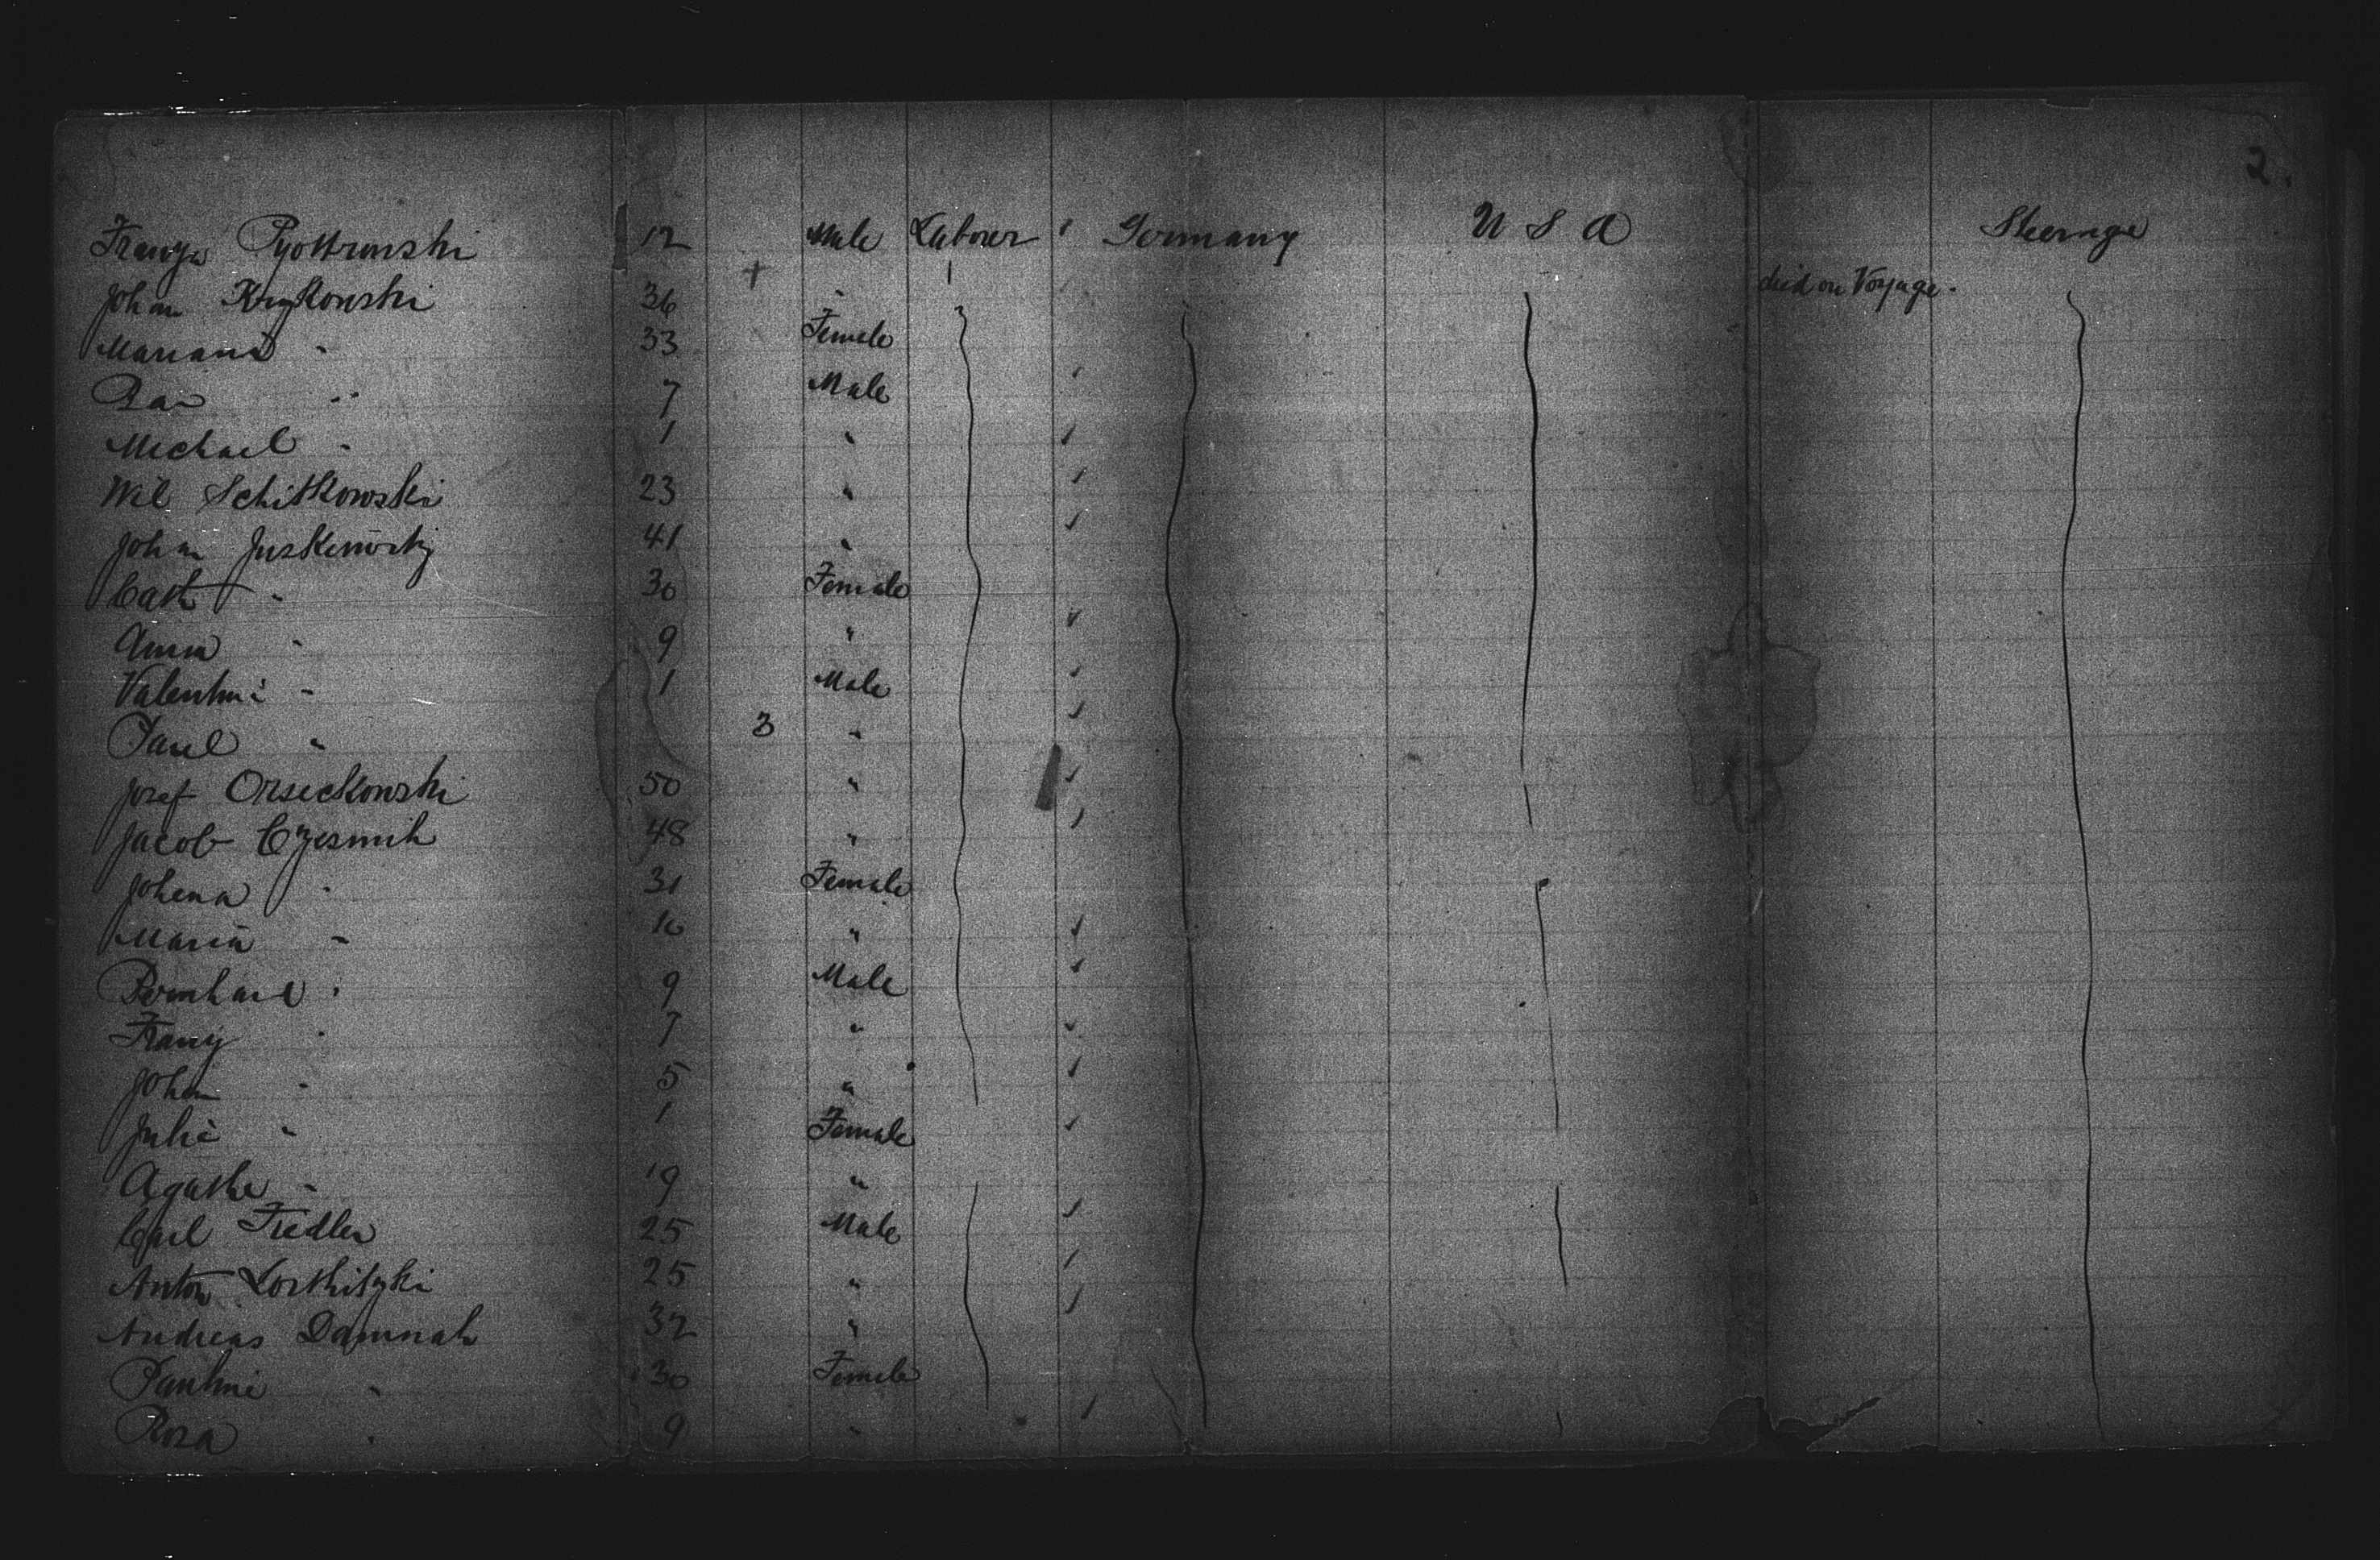 2.
Franz Pyottrowski 12 Male Labourer Germany U S A Steerage
Johan Krykowski 36 " died on Voyage.
Mariana " 33 Female
" 7 Male
Michael " 1 "
Wil Schitkowski 23 "
Johan Juskenwitz 41 "
Cath " 30 Female
Anna " 9 "
Valentin " 1 Male
Paul " 3 "
Josef Orseckowski 50 "
Jacob Czesnik 48 "
Johena " 31 Female
Maria " 16 "
Bernhard " 9 Male
Franz " 7 "
Johan " 5 "
Julie " 1 Female
Agathe " 19 "
Carl Fiedler 25 Male
Anton 25 "
Andreas Damnah 32 "
Pauline " 30 Female
Rosa " 9 "